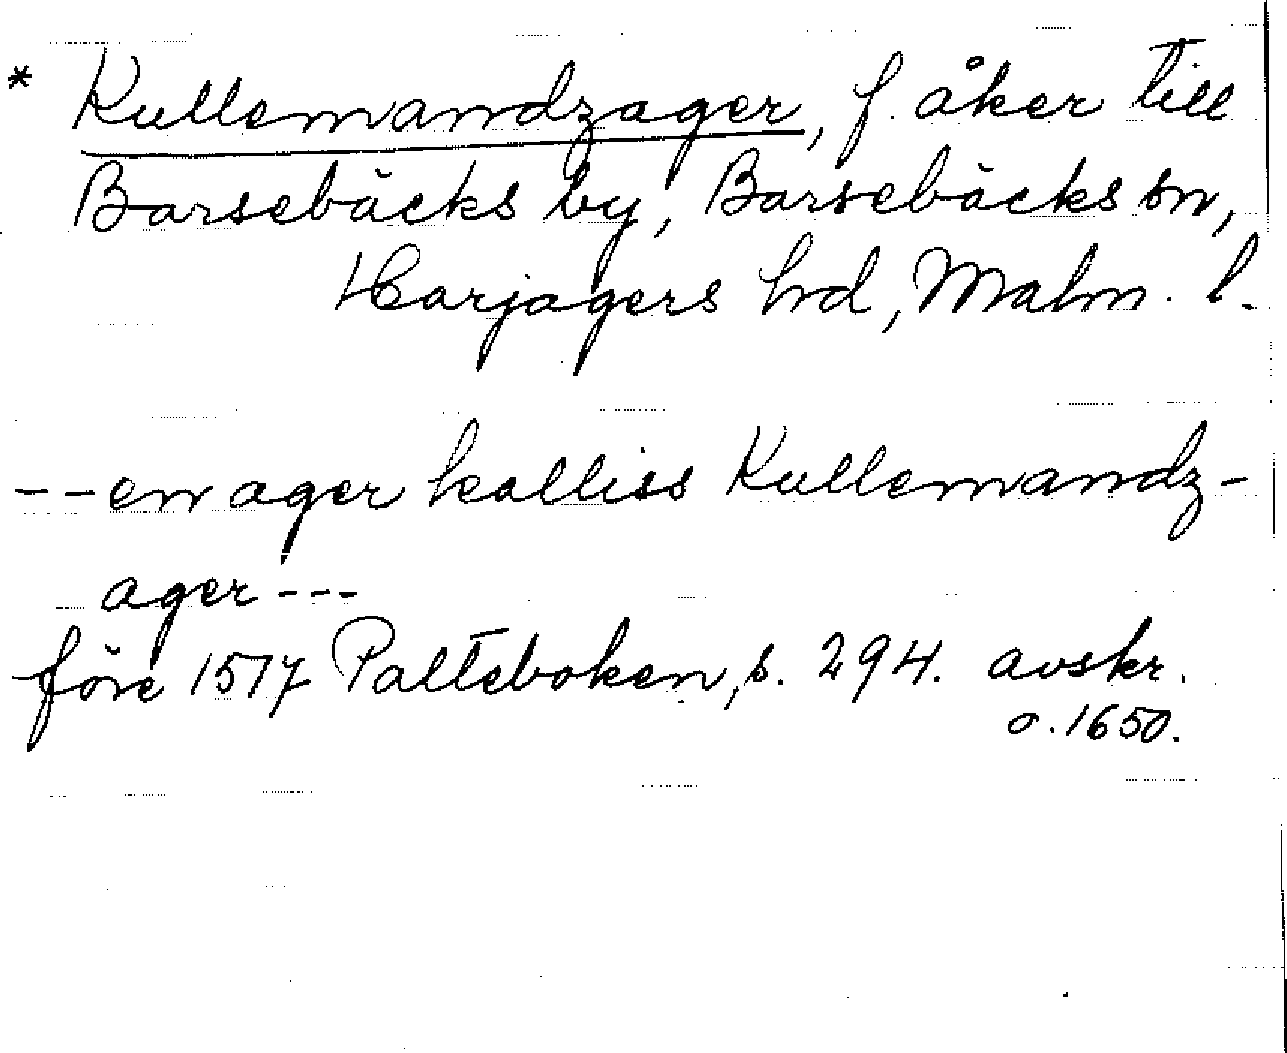 * Kullemandzager, f. åker till
Barsebäcks by, Barsebäcks sn,
Harjagers hd, Malm. l.
--en ager kalliss Kullemandz-
ager---
före 1517 Palteboken, s. 294. avskr.
o. 1650.